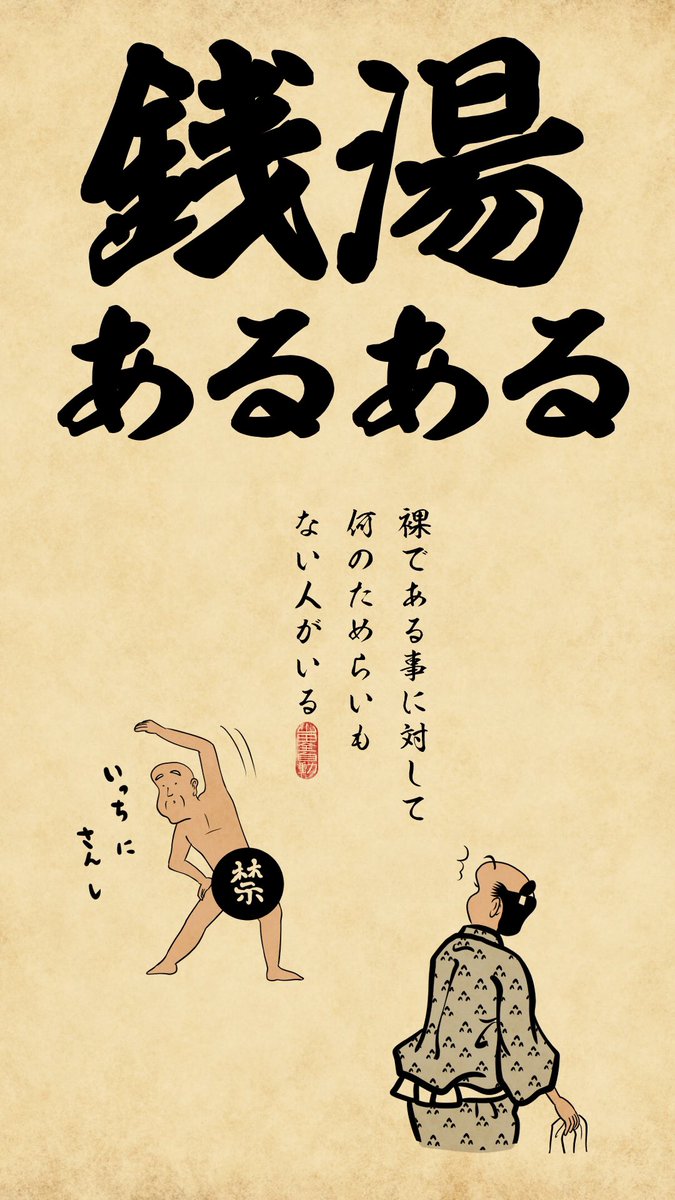 銭湯
あるある
裸である事に対して
何のためらいも
ない人がいる
いっち に
さん し
禁